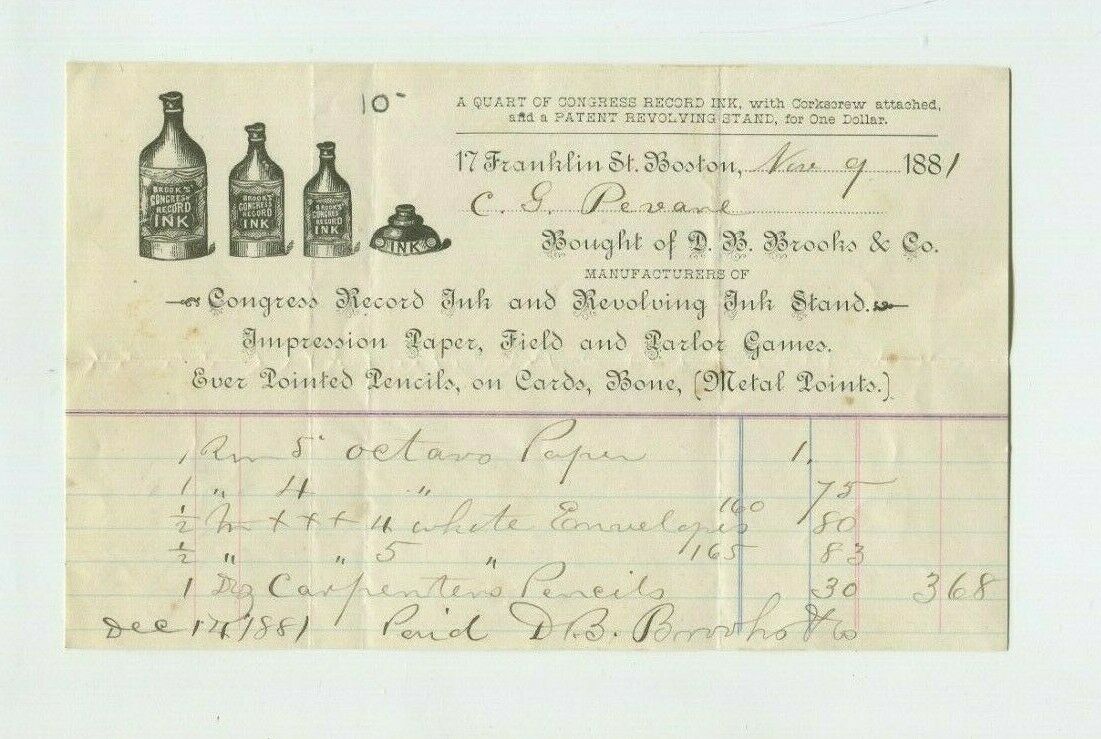 10-
A QUART OF CONGRESS RECORD INK, with Corkscrew attached,
and a PATENT REVOLVING STAND, for One Dollar.
17 Franklin St. Boston, Nov 9 1881
C. G. Pevare
Bought of D. B. Brooks & Co.
MANUFACTURERS OF
Congress Record Ink and Revolving Ink Stand.
Impression Paper, Field and Parlor Games.
Ever Pointed Pencils, on Cards, Bone, (Metal Points.)
BROOK'S CONGRESS RECORD INK
BROOK'S CONGRESS RECORD INK
BROOK'S CONGRESS RECORD INK
INK
1 Rm 5 octavo Paper 1.
1 " 4 " 75
1/2 M XXX 4 white Envelopes 160 80
1/2 " " 5 " 165 83
1 Dz Carpenters Pencils 30 368
Dec 14 1881 Paid D.B. Brooks & Co